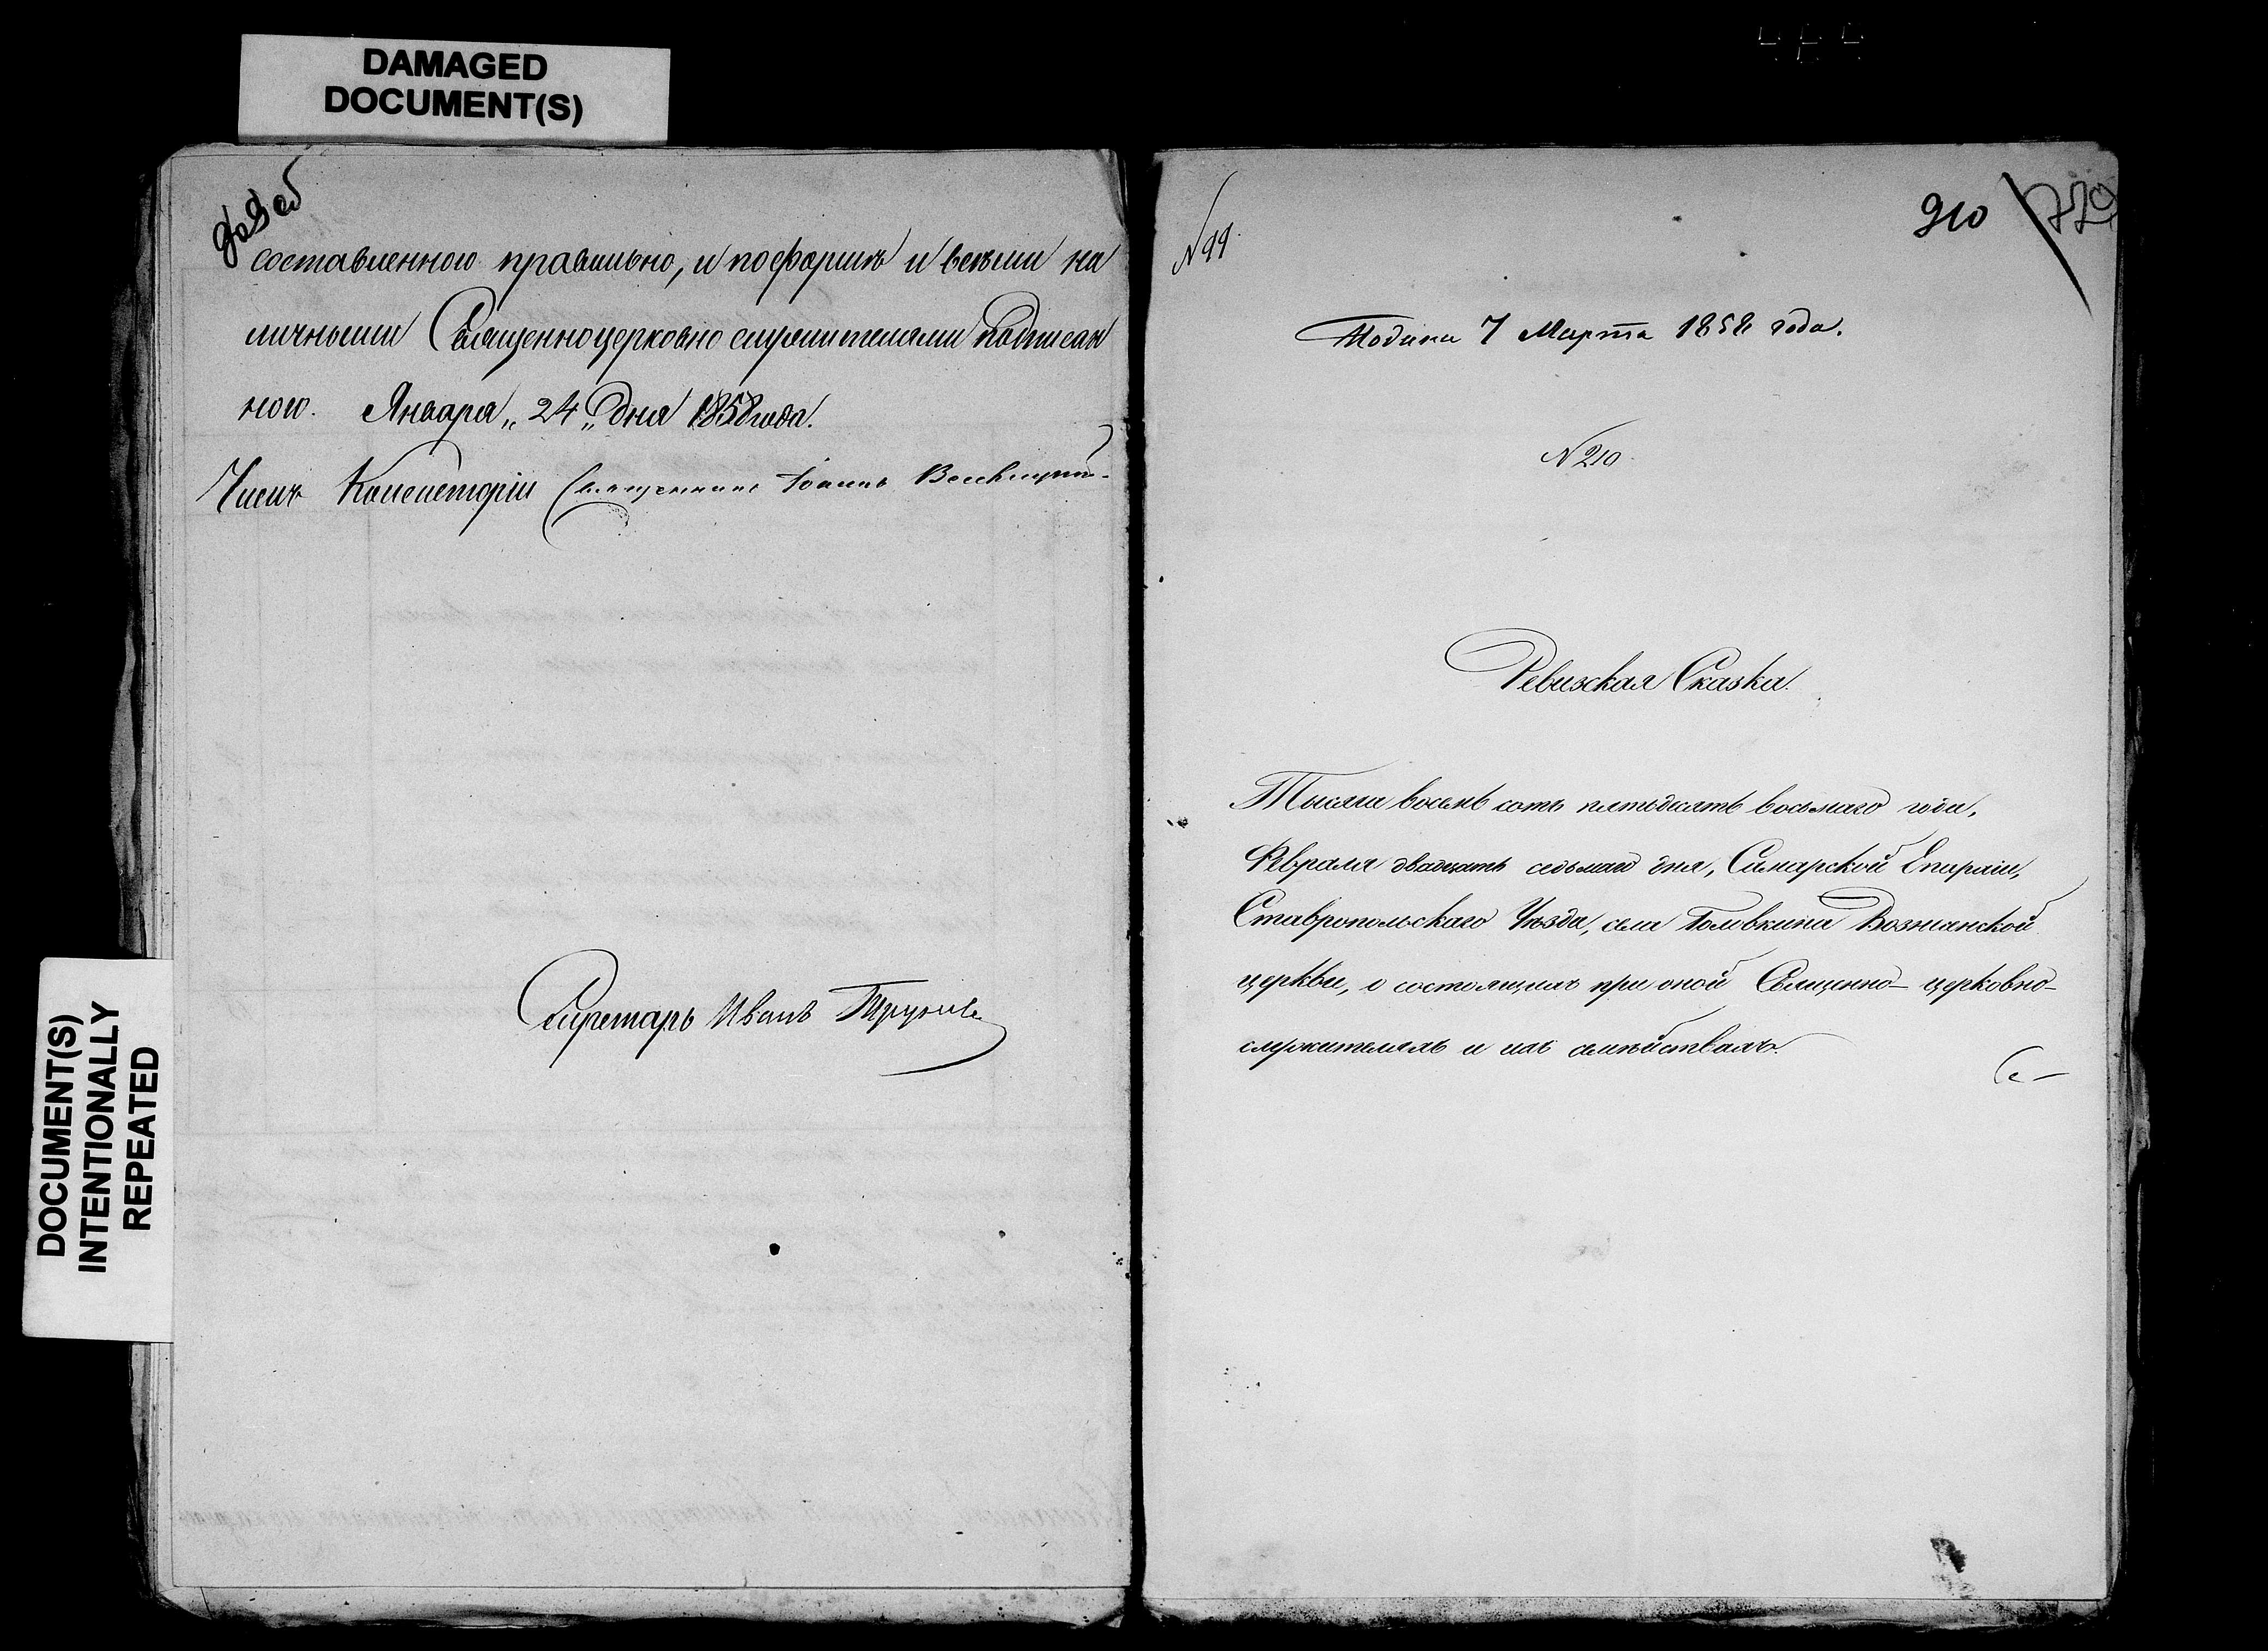 DAMAGED
DOCUMENT(S)
составленного правильно, и по формѣ и всѣми на
личными Священноцерковно служителями подписан
ного. Января „ 24 „ дня 1858 года.
Членъ Консисторіи Священникъ Іоаннъ
Секретарь Иванъ
DOCUMENT(S)
INTENTIONALLY
REPEATED
N 99.
210
Подана 7 Марта 1858 года.
N 210.
Ревизская Сказка.
Тысяча восемь сотъ пятьдесятъ восьмаго года,
Февраля двадцать седьмаго дня, Самарской Епархіи,
Ставропольскаго Уѣзда, села Головкина Вознесенской
церкви, о состоящихъ при оной Священно- церковно-
служителяхъ и ихъ семѣйствахъ.